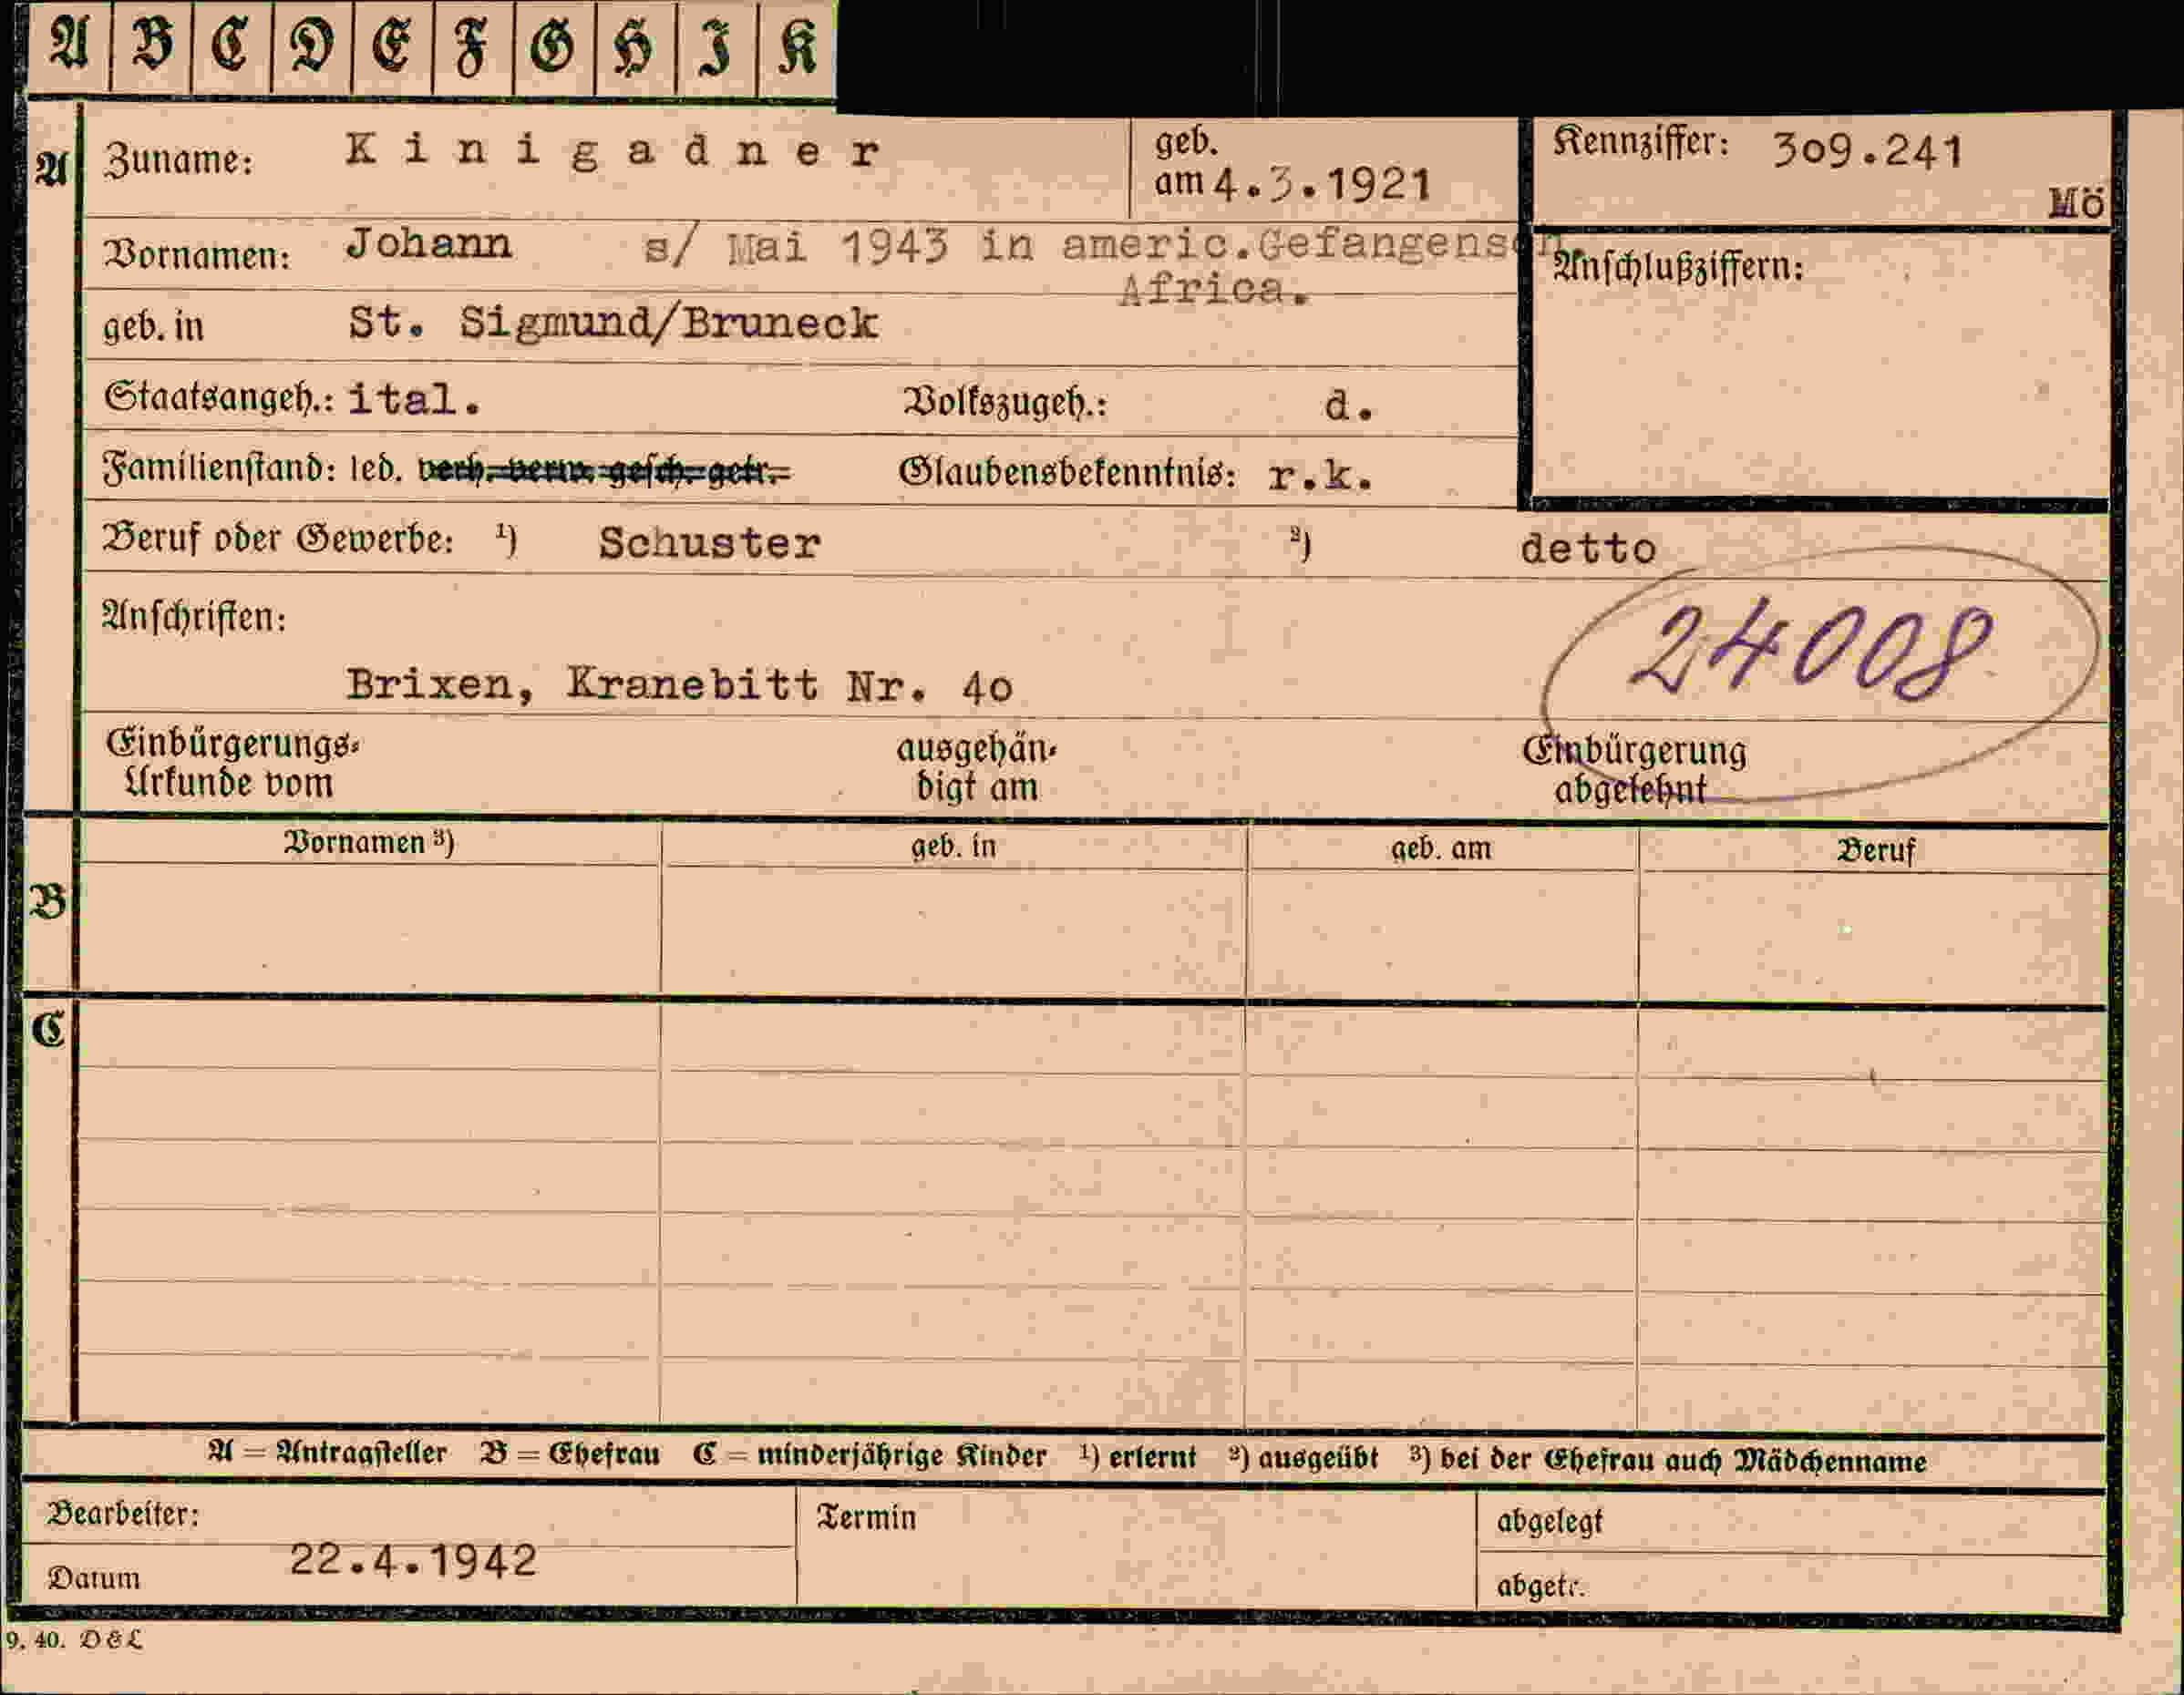 A B C D E F G H I K
A Zuname: Kinigadner geb. am 4.3.1921 Kennziffer: 309.241
Mö
Vornamen: Johann s/ Mai 1943 in americ.Gefangensch
Africa.
Anschlußziffern:
geb. in St. Sigmund/Bruneck
Staatsangeh.: ital. Volkszugeh.: d.
Familienstand: led. verh. verw. gesch. getr. Glaubensbekenntnis: r.k.
Beruf oder Gewerbe: ¹) Schuster ²) detto
Anschriften:
24008
Brixen, Kranebitt Nr. 40
Einbürgerungs- ausgehän- Einbürgerung
Urkunde vom digt am abgelehnt
Vornamen ³) geb. in geb. am Beruf
B
C
A = Antragsteller B = Ehefrau C = minderjährige Kinder ¹) erlernt ²) ausgeübt ³) bei der Ehefrau auch Mädchenname
Bearbeiter: Termin abgelegt
Datum 22.4.1942 abgetr.
9. 40. D&L